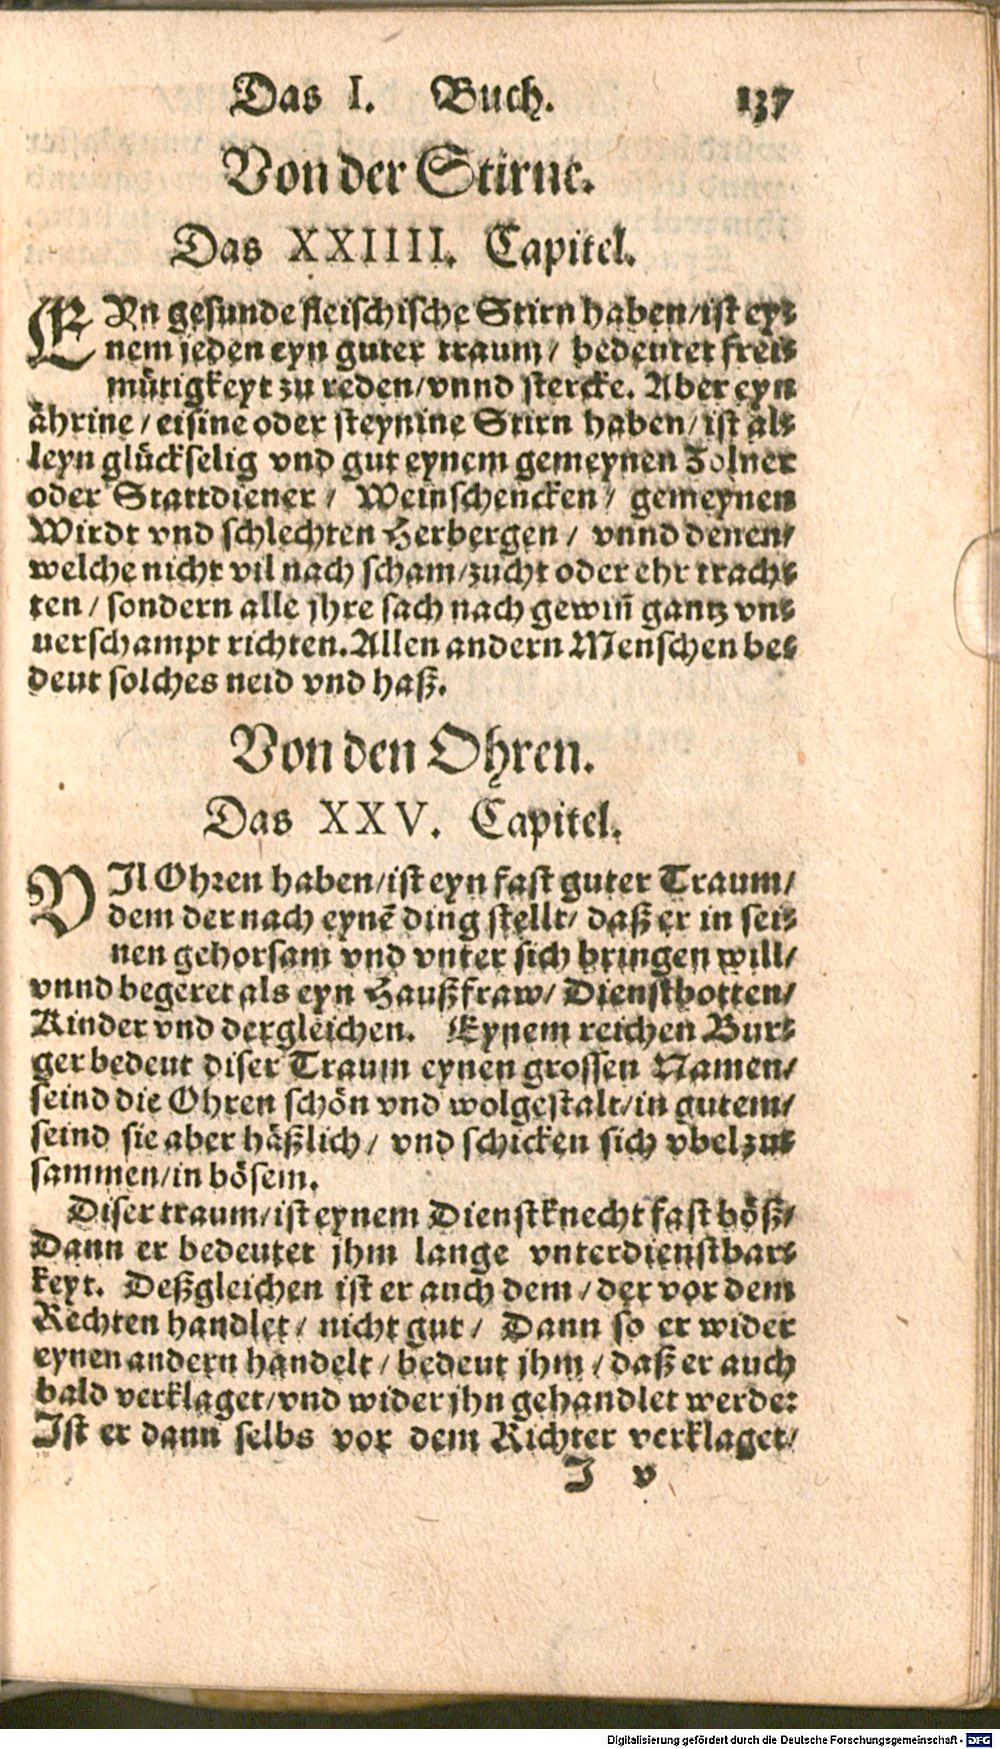 Das I. Buch. 137
Von der Stirne.
Das XXIIII. Capitel.
EYn gesunde fleischische Stirn haben/ist ey⸗
nem jeden eyn guter traum/ bedeutet frei⸗
mütigkeyt zu reden/vnnd stercke. Aber eyn
ährine/eisine oder steynine Stirn haben/ist al⸗
leyn glückselig vnd gut eynem gemeynen Zolner
oder Stattdiener/ Weinschencken/ gemeynen
Wirdt vnd schlechten Herbergen/ vnnd denen/
welche nicht vil nach scham/zucht oder ehr trach⸗
ten/sondern alle jhre sach nach gewin̄ gantz vn⸗
uerschampt richten. Allen andern Menschen be⸗
deut solches neid vnd haß.
Von den Ohren.
Das XXV. Capitel.
VIl Ohren haben/ist eyn fast guter Traum/
dem der nach eynē ding stellt/ daß er in sei⸗
nen gehorsam vnd vnter sich bringen will/
vnnd begeret als eyn Haußfraw/ Dienstbotten/
Kinder vnd dergleichen. Eynem reichen Bur⸗
ger bedeut diser Traum eynen grossen Namen/
seind die Ohren schön vnd wolgestalt/in gutem/
seind sie aber häßlich/ vnd schicken sich vbel zu⸗
sammen/in bösem.
Diser traum/ist eynem Dienstknecht fast böß/
Dann er bedeutet jhm lange vnterdienstbar⸗
keyt. Deßgleichen ist er auch dem/der vor dem
Rechten handlet/ nicht gut/ Dann so er wider
eynen andern handelt/bedeut jhm/daß er auch
bald verklaget/vnd wider jhn gehandlet werde:
Ist er dann selbs vor dem Richter verklaget/
J v
Digitalisierung gefördert durch die Deutsche Forschungsgemeinschaft - DFG